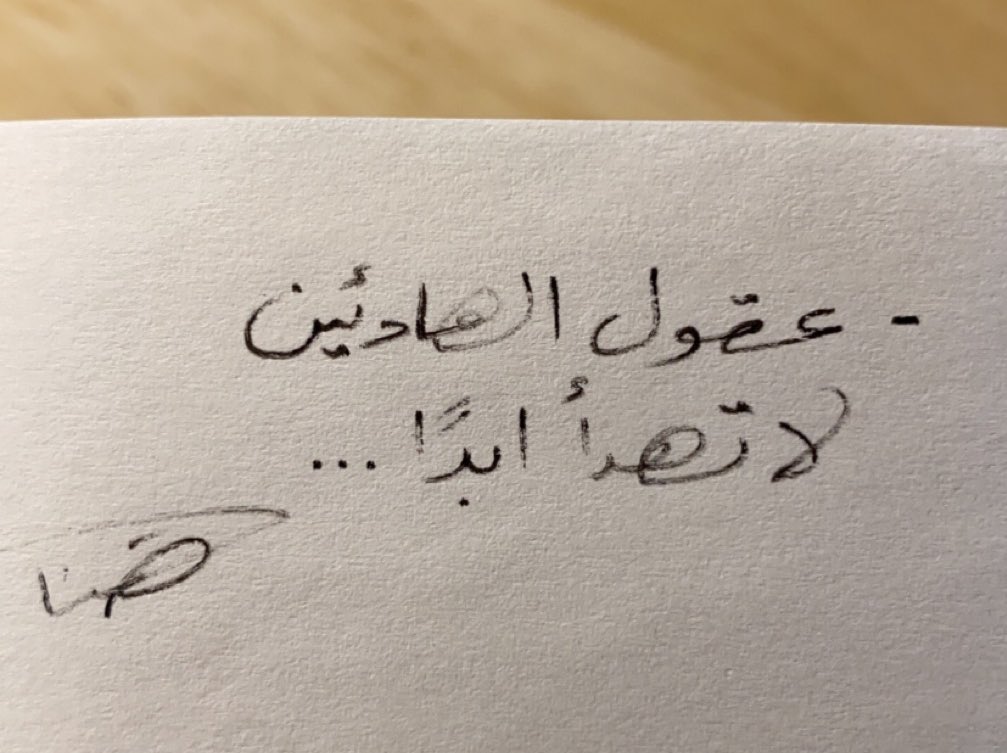 - عقول الهادئين
لا تهدأ ابدًا ...